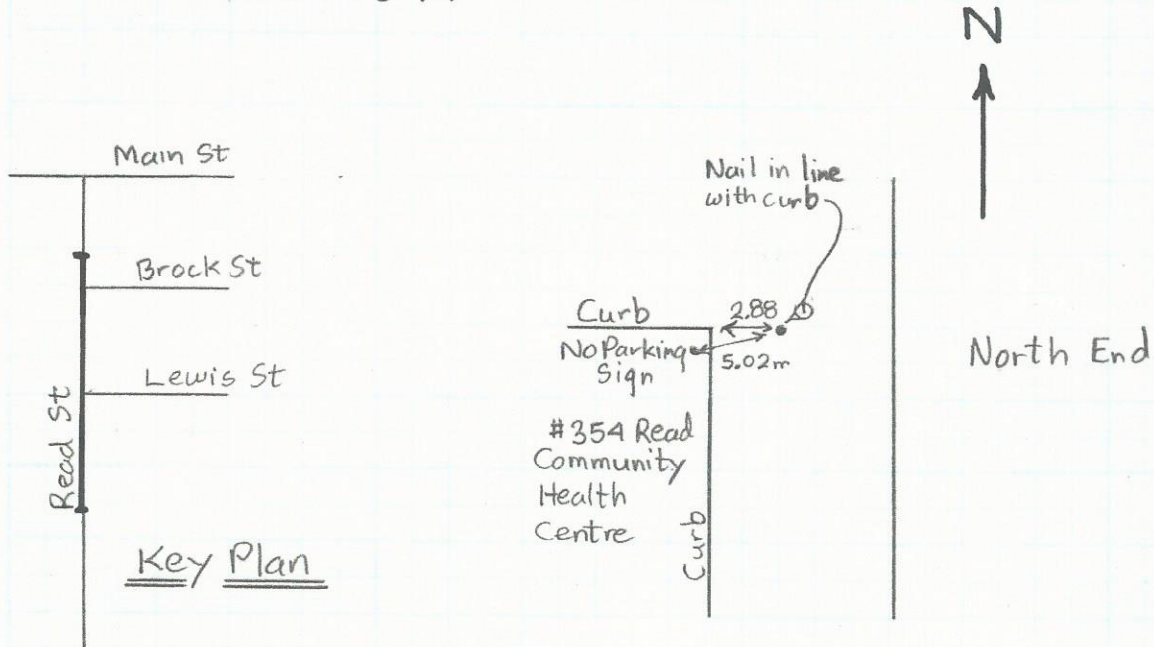 N
Main St
Brock St
Lewis St
Read St
Key Plan
Nail in line
with curb
Curb
2.88
No Parking
Sign
5.02m
#354 Read
Community
Health
Centre
Curb
North End